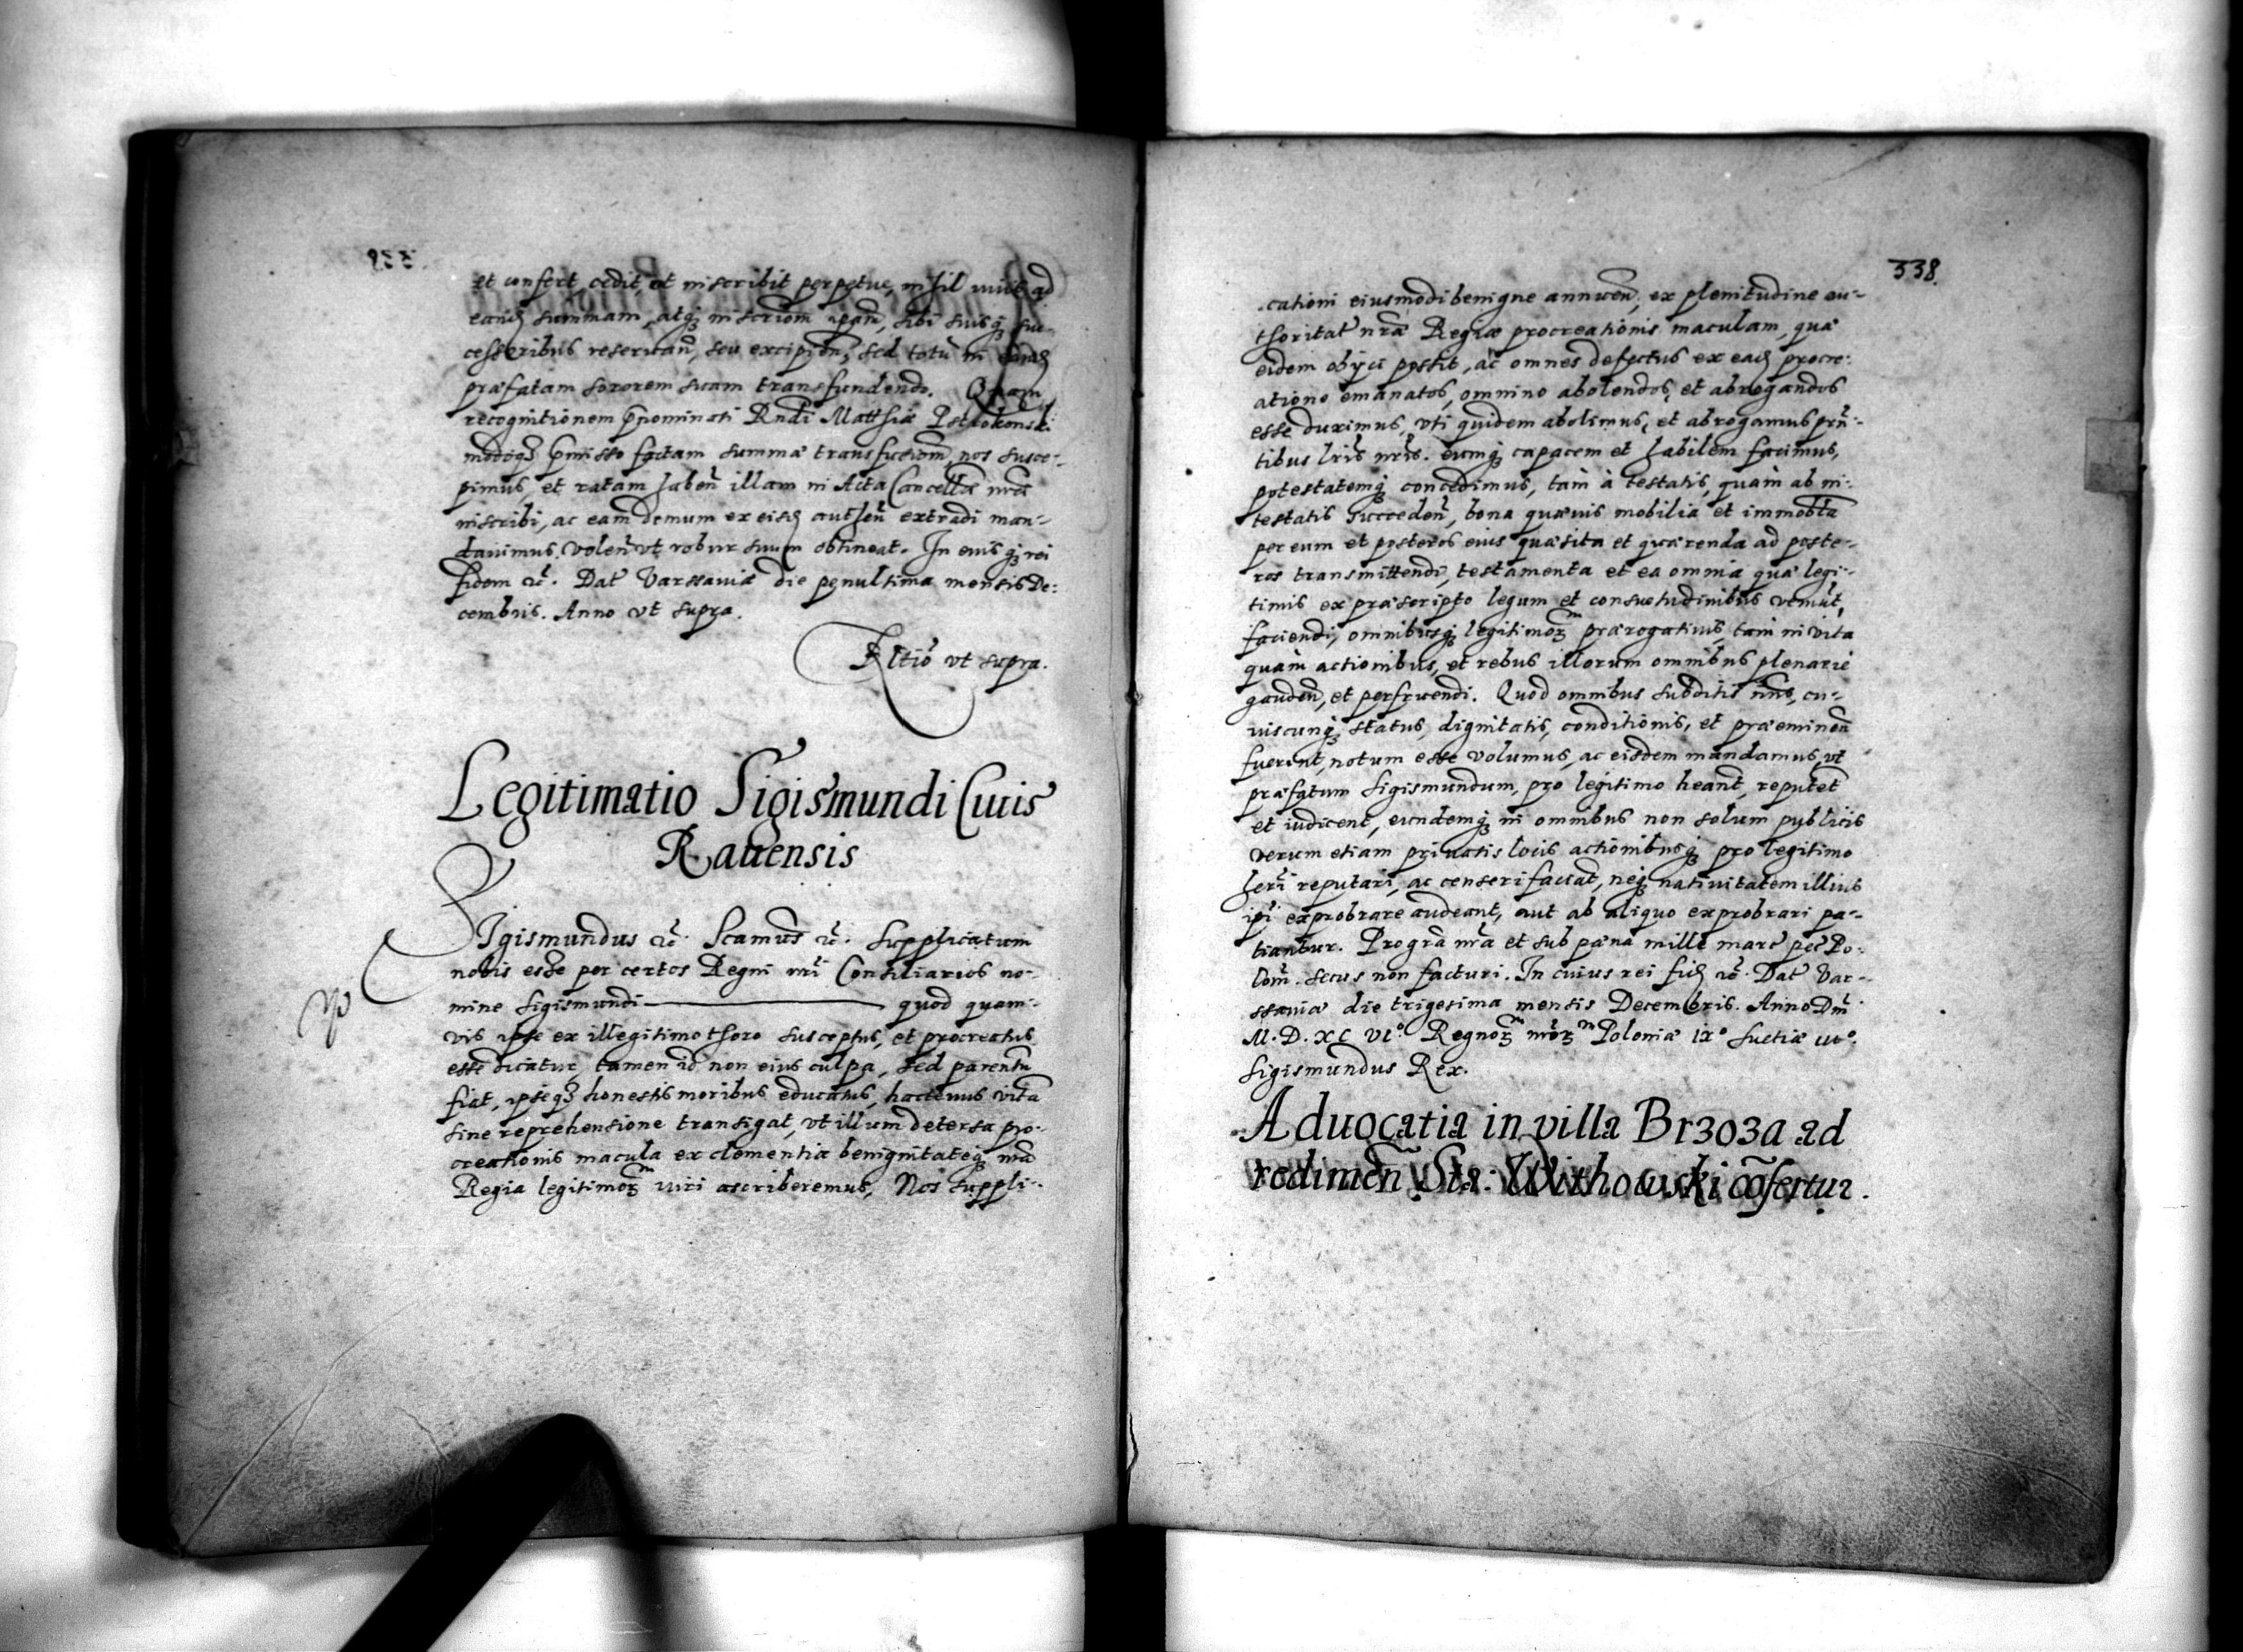 et confert, cedit, et inscribit perpetue, nihil iuris ad
eand summam, atq inscriom ipam, sibi suisq suc-
cessoribus reseruan, seu excipien, sed totu in eand
præfatam sororem suam transfundendo. Quam
recognitionem pnominati Rndi Matthiæ Pstrokonski
modoq pmisso factam summæ transfusiom, nos susce-
pimus, et ratam haben illam in Acta Cancellæ nræ
inscribi, ac eam demum ex eisd authen extradi man-
dauimus. Volen vt robur suum obtineat. In cuius q rei
fidem ec. Dat Varssauiæ die penultima mensis De:
cembris. Anno vt supra.
Rltio vt supra.
Legitimatio Sigismundi Ciuis
Rauensis
Sigismundus ec. Scamus ec. Supplicatum
nobis esse per certos Regni nri Consiliarios no-
mine Sigismundi ——— quod quam-
vis ipse ex illegitimo thoro susceptus, et procreatus
esse dicatur, tamen id non eius culpa, sed parentu
fiat, ipseq honestis moribus educatus, hactenus vita
sine reprehensione transigat, vt illum detersa pro-
creationis macula ex clementia benignitateq nra
Regia legitimor viri ascriberemus, Nos suppli-
338.
cationi eiusmodi benigne annuen, ex plenitudine au-
thoritat nræ Regiæ procreationis maculam, quæ
eidem obijci possit, ac omnes defectus ex ead procre-
atione emanatos, omnino abolendos, et abrogandos
esse duximus, vti quidem abolimus, et abrogamus prn-
tibus lris nris. eumq capacem et habilem facimus,
potestatemq concedimus, tàm à testatis, quàm ab in-
testatis succeden, bona quæuis mobilia et immobla
per eum et posteros eius quæsita et quærenda ad poste-
ros transmittendi, testamenta et ea omnia quæ legi-
timis ex præscripto legum et consuetudinibus vtunt,
faciendi, omnibusq legitimor prærogatiuis, tàm in vita
quàm actionibus, et rebus illorum omnibus plenarie
gauden, et perfruendi. Quod omnibus subditis nris, cu-
iuscunq status, dignitatis, conditionis, et præeminen
fuerint, notum esse volumus, ac eisdem mandamus, vt
præfatum Sigismundum, pro legitimo heant, reputet
et iudicent, eundemq in omnibus non solum publicis
verum etiam priuatis locis actionibusq pro legitimo
heri reputari, ac censeri faciat, neq natiuitatem illius
ipi exprobrare audeant, aut ab aliquo exprobrari pa-
tiantur. Pro gra nra et sub pæna mille marc pec Po-
lom. secus non facturi. In cuius rei fid ec. Dat Var-
ssauiæ die trigesima mensis Decembris. Anno Dni
M. D. XC VI.° Regnor nror Poloniæ ix° Suetiæ iii°.
Sigismundus Rex.
Aduocatia in villa Brzoza ad
redimen Sta: Withowski cõfertur.